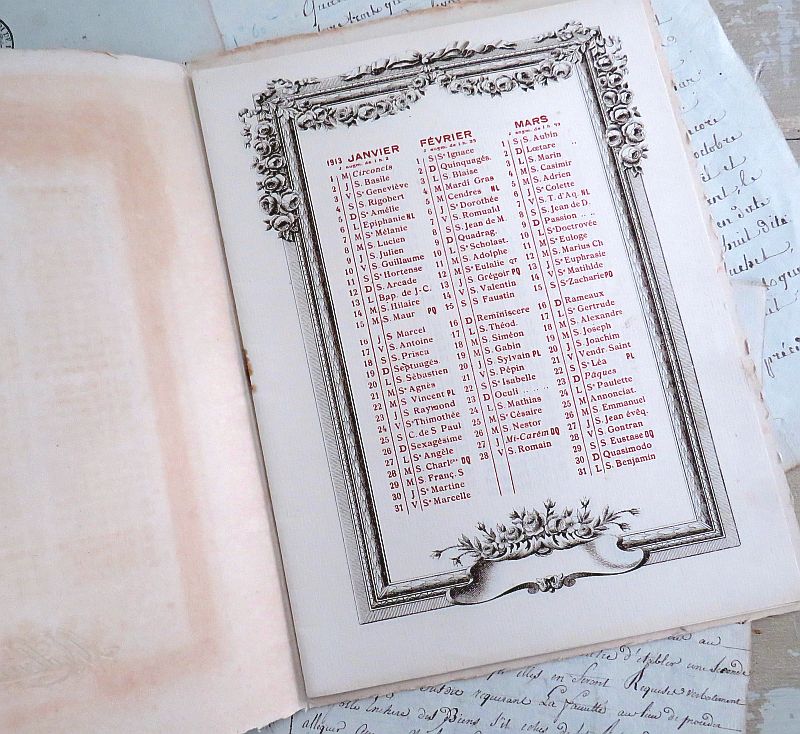 1913 JANVIER
J augm. de 1 h. 2
1 M Circoncis
2 J S. Basile
3 V Sᵉ Geneviève
4 S S. Rigobert
5 D Sᵉ Amélie
6 L Epiphanie NL
7 M Sᵉ Mélanie
8 M S. Lucien
9 J S. Julien
10 V S. Guillaume
11 S Sᵉ Hortense
12 D S. Arcade
13 L Bap. de J.-C.
14 M S. Hilaire
15 M S. Maur PQ
16 J S. Marcel
17 V S. Antoine
18 S S. Prisca
19 D Septuagés
20 L S. Sébastien
21 M Sᵉ Agnès
22 M S. Vincent PL
23 J S. Raymond
24 V Sᵉ Thimothée
25 S C. de S. Paul
26 D Sexagésime
27 L Sᵉ Angèle
28 M S. Charl. DQ
29 M S. Franç. S
30 J Sᵉ Martine
31 V Sᵉ Marcelle
FÉVRIER
1 S Sᵗ Ignace
2 D Quinquagés.
3 L S. Blaise
4 M Mardi Gras
5 M Cendres NL
6 J Sᵉ Dorothée
7 V S. Romuald
8 S S. Jean de M.
9 D Quadrag.
10 L Sᵉ Scholast.
11 M S. Adolphe
12 M Sᵉ Eulalie QT
13 J S. Grégoir PQ
14 V S. Valentin
15 S S Faustin
16 D Reminiscere
17 L S. Théod.
18 M S. Siméon
19 M S. Gabin
20 J S. Sylvain PL
21 V S. Pépin
22 S Sᵉ Isabelle
23 D Oculi
24 L S. Mathias
25 M Sᵗ Césaire
26 M S. Nestor
27 J Mi-Carêm DQ
28 V S. Romain
MARS
1 S S. Aubin
2 D Lœtare
3 L S. Marin
4 M S. Casimir
5 M S. Adrien
6 J Sᵉ Colette
7 V S. T. d'Aq. NL
8 S S. Jean de D.
9 D Passion
10 L Sᵗ Doctrovée
11 M Sᵗ Euloge
12 M S. Marius Ch
13 J Sᵉ Euphrasie
14 V Sᵉ Mathilde
15 S Sᵗ Zacharie PQ
16 D Rameaux
17 L Sᵉ Gertrude
18 M S. Alexandre
19 M S. Joseph
20 J S. Joachim
21 V Vendr. Saint
22 S Sᵉ Léa PL
23 D Pâques
24 L Sᵉ Paulette
25 M Annonciat.
26 M S. Emmanuel
27 J S. Jean évêq.
28 V S. Gontran
29 S S. Eustase DQ
30 D Quasimodo
31 L S. Benjamin
d'établer une Seconde
elles en Seront Requises verbalement
requerant La famille au lieu de procéder
alléguer